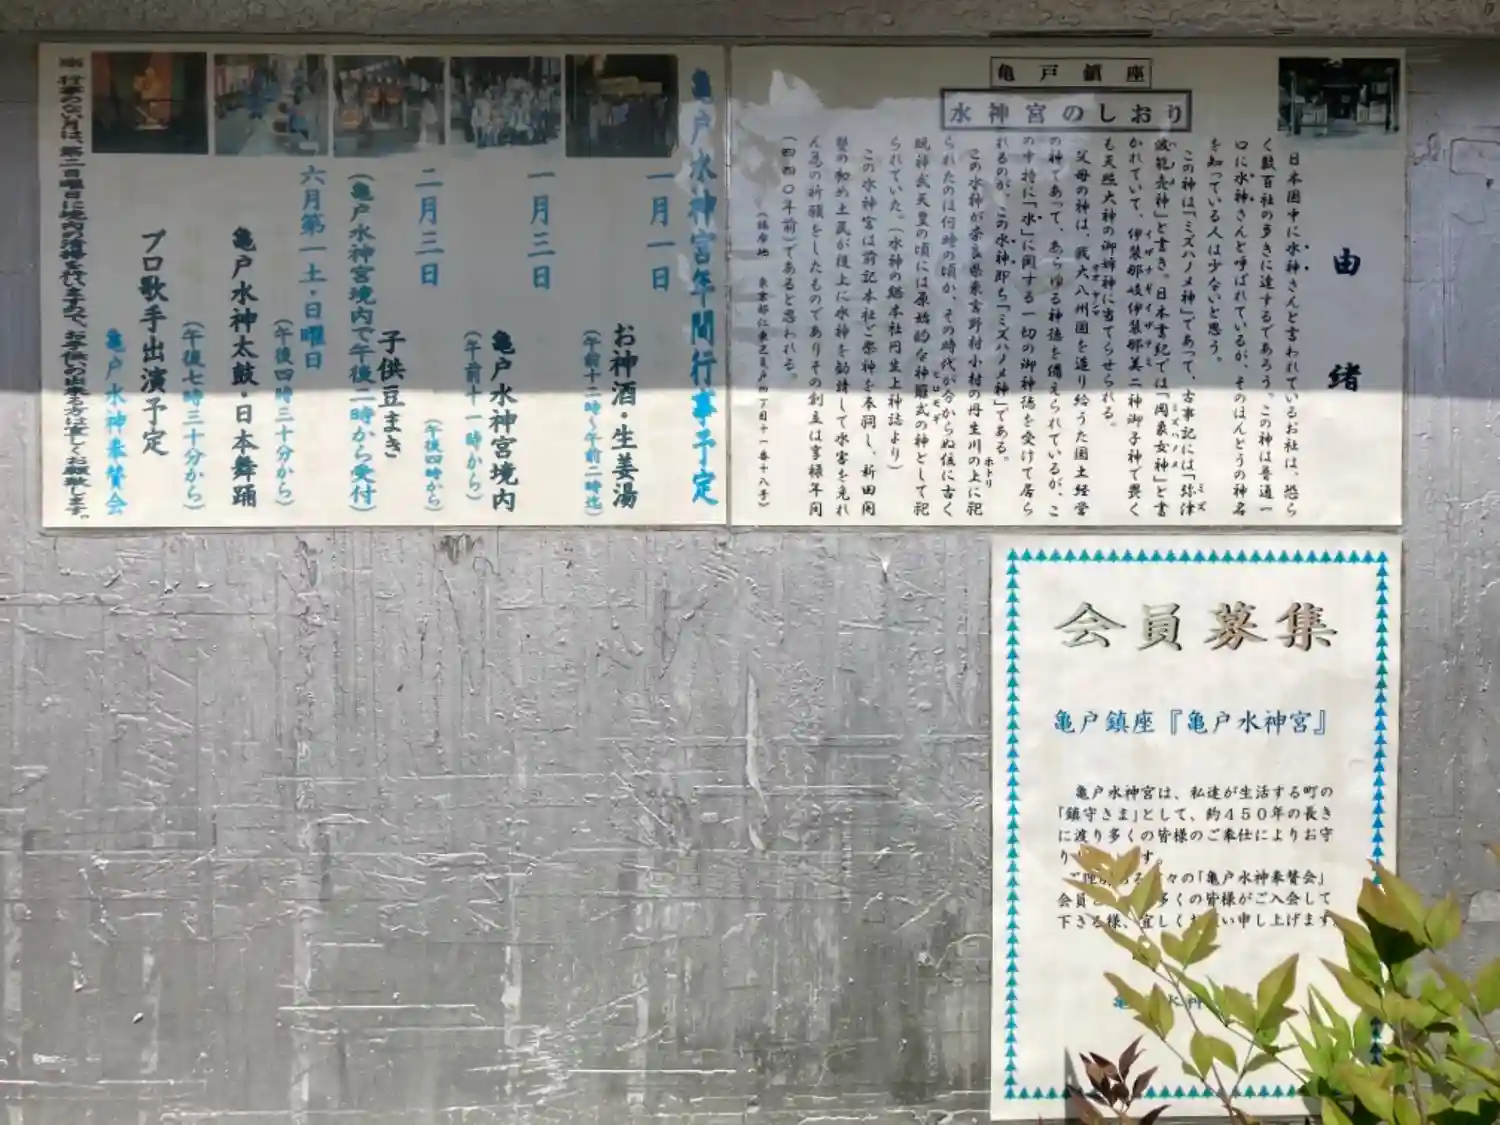 亀戸鎮座
水神宮のしおり
由緒
日本国中に水神さんと言われているお社は、恐ら
く数百社の多きに達するであろう。この神は普通一
口に水神さんと呼ばれているが、そのほんとうの神名
を知っている人は少ないと思う。
この神は「ミズハノメ神」であって、古事記には「弥津
波能売神」と書き。日本書紀では「罔象女神」と書
かれていて、伊弉那岐伊弉那美二神御子神で畏く
も天照大神の御姉神に当てらせられる。
父母の神は、我大八州国を造り給うた国土経営
の神てあって、あらゆる神徳を備えられているが、こ
の中特に「水」に関する一切の御神徳を受けて居ら
れるのが、この水神即ち「ミズハノメ神」である。
この水神が奈良県東吉野村小村の丹生川の上に祀
られたのは何時の頃か、その時代が分からぬ位に古く
既神武天皇の頃には原始的な神籬式の神として祀
られていた。(水神の総本社丹生上神誌より)
この水神宮は前記本社と祭神を奉祠し、新田開
墾の初め土民が後上に水神を勧請して水害を免れ
ん為の祈願をしたものでありその創立は享禄年間
(四四〇年前)であると思われる。
亀戸水神宮年間行事予定
一月一日
お神酒・生姜湯
(午前十二時〜午前二時迄)
一月三日
亀戸水神宮境内
(午前十一時から)
二月三日
子供豆まき
(午後四時から)
(亀戸水神宮境内で午後二時から受付)
六月第一土・日曜日
(午後四時三十分から)
亀戸水神太鼓・日本舞踊
(午後七時三十分から)
プロ歌手出演予定
亀戸水神奉賛会
会員募集
亀戸鎮座『亀戸水神宮』
亀戸水神宮は、私達が生活する町の
「鎮守さま」として、約450年の長き
に渡り多くの皆様のご奉仕によりお守
り す。
々の「亀戸水神奉賛会」
会員 多くの皆様がご入会して
下さる様、宜しくお い申し上げます